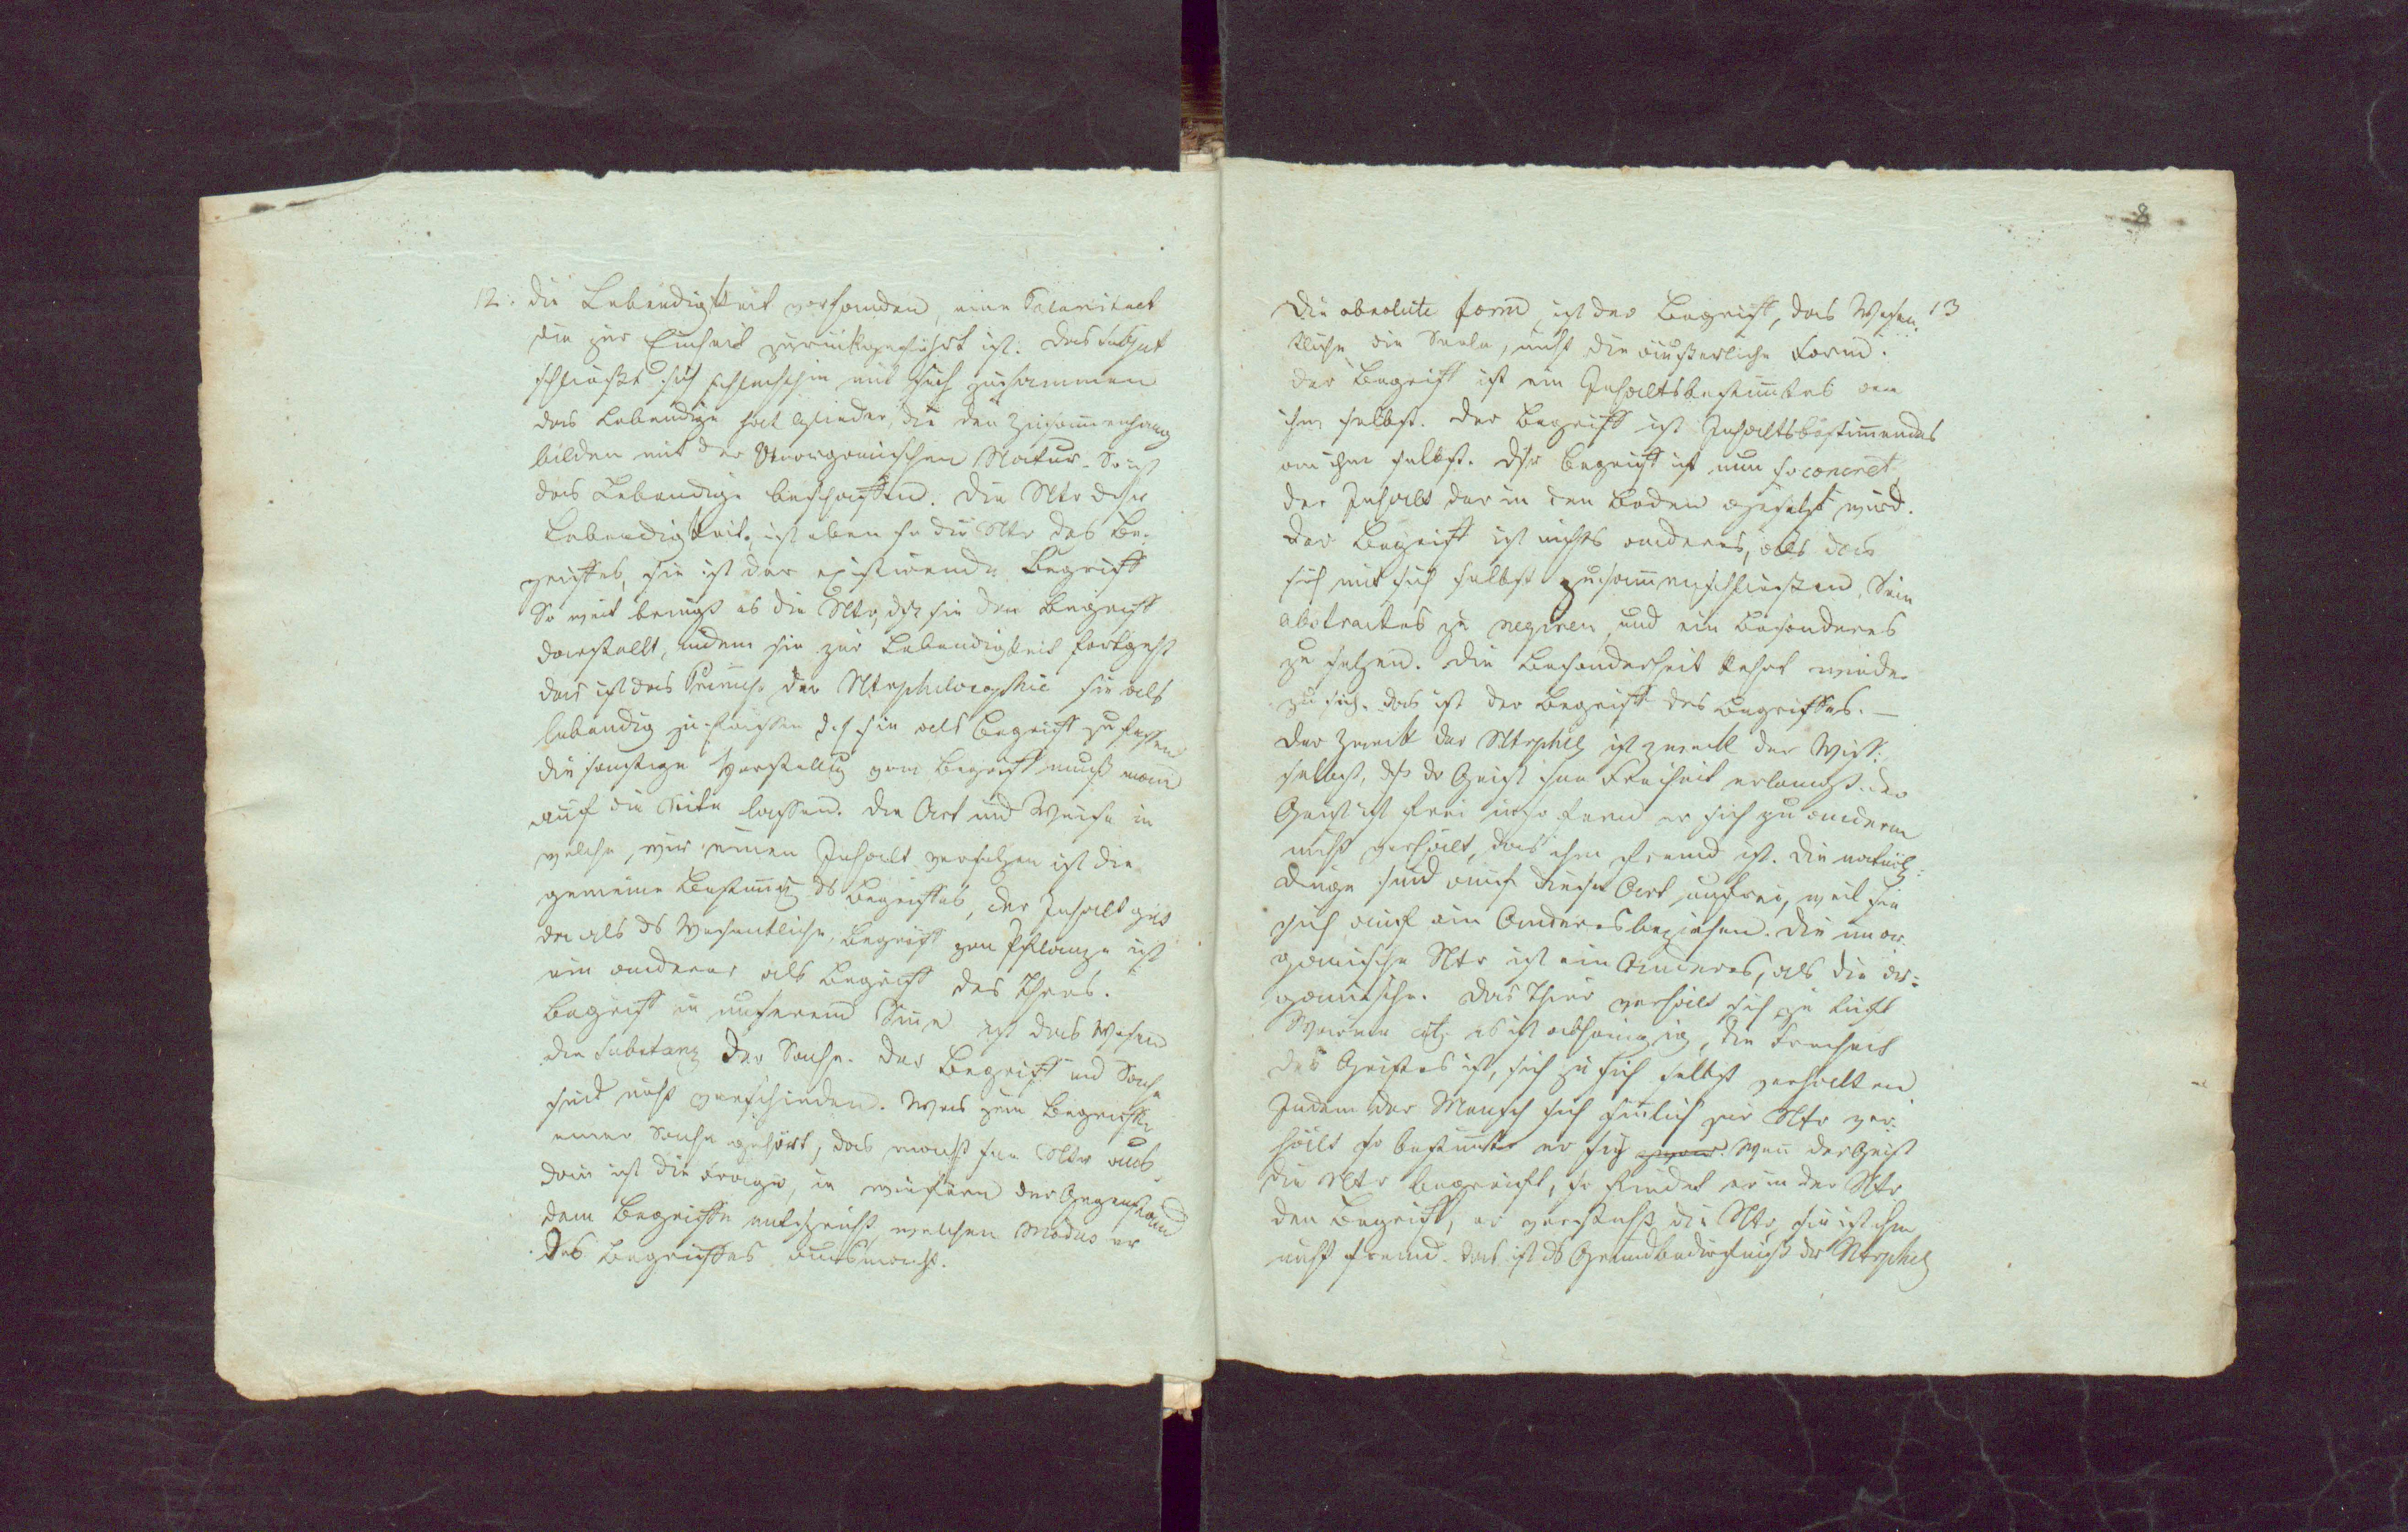 12. die Lebendigkeit vorhanden, eine Totalitaet
die zur Einheit zurückgeführt ist. Das Subjekt
schließt sich schlechthin mit sich zusammen
das Lebendige hat Glieder, die den Zusam̄enhang
bilden mit der Unorganischen Natur. So ist
das Lebendige beschaffen. Die Ntr dsr
Lebendigkeit, ist eben so die Ntr des Be-
griffes, sie ist der existirende Begriff
So weit bringt es die Ntr, dß sie den Begriff
darstellt, indem sie zur Lebendigkeit fortgeht
das ist das Princip der Ntrphilosophie sie als
lebendig zu fassen d. h sie als Begriff zu fassen
die sonstige Vorstellg vom Begriff muß man
auf die Seite lassen. Die Art und Weise in
welche, wir einen Inhalt versetzen ist die
gemeine Bestim̄g ds Begriffes, der Inhalt gilt
da als ds Wesentliche, Begriff von Pflanze ist
ein anderer als Begriff des Thiers.
Begriff in unserem Sin̄e ist das Wesen
die Substanz der Sache. Der Begriff und Sache
sind nicht verschieden. Was zum Begriffe
einer Sache gehört, das macht ihre Ntr aus,
dan̄ ist die Frage, in wiefern der Gegenstand
dem Begriffe entspricht, welchen Modus er
des Begriffes ausmacht.
8
Die absolute Form, ist der Begriff, das Wesen- 13
tliche die Seele, nicht die äußerliche Form.
der Begriff ist ein Inhaltsbestim̄tes an
ihm selbst. Der Begriff ist Inhaltsbestim̄endes
an ihm selbst. Dsr Begriff ist nun so concret,
der Inhalt der in den Boden gesetzt wird.
Der Begriff ist nichts anderes, als das
sich mit sich selbst zusam̄enschließen, Sein
abstractes zu negiren, und ein Besonderes
zu setzen. Die Besonderheit kehrt wieder
zu sich. das ist der Begriff des Begriffes. —
Der Zweck der Ntrphil ist Zweck der Wiss.
selbst, dß dr Geist seine Freiheit erlangt. der
Geist ist frei in so fern er sich zu anderem
nicht verhält, das ihm fremd ist. Die natürl:
Dinge sind auf diese Art unfrei, weil sie
sich auf ein Anderes beziehen. Die unor-
ganische Ntr ist ein Anderes, als die or-
ganische. Das Thier verhält sich zu Luft
Wärme etc es ist abhängig, die Freiheit
des Geistes ist, sich zu sich selbst verhalten
Indem der Mensch sich sinlich zur Ntr ver-
hält so bestim̄t er sich. Wen̄ der Geist
die Ntr begreift, so findet er in der Ntr
den Begriff, er versteht die Ntr, sie ist ihm
nicht fremd. das ist ds Grundbedürfniß der Ntrphil